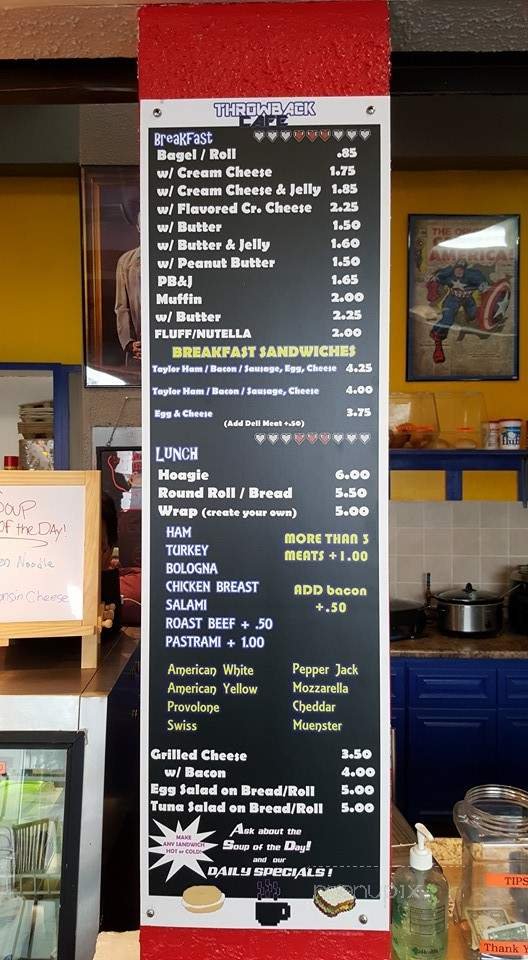 THROWBACK
CAFE
Breakfast
Bagel / Roll .85
w/ Cream Cheese 1.75
w/ Cream Cheese & Jelly 1.85
w/ Flavored Cr. Cheese 2.25
w/ Butter 1.50
w/ Butter & Jelly 1.60
w/ Peanut Butter 1.50
PB&J 1.65
Muffin 2.00
w/ Butter 2.25
FLUFF/NUTELLA 2.00
BREAKFAST SANDWICHES
Taylor Ham / Bacon / Sausage, Egg, Cheese 4.25
Taylor Ham / Bacon / Sausage, Cheese 4.00
Egg & Cheese 3.75
(Add Deli Meat +.50)
LUNCH
Hoagie 6.00
Round Roll / Bread 5.50
Wrap (create your own) 5.00
HAM
TURKEY
BOLOGNA
CHICKEN BREAST
SALAMI
ROAST BEEF + .50
PASTRAMI + 1.00
MORE THAN 3
MEATS +1.00
ADD bacon
+.50
American White
American Yellow
Provolone
Swiss
Pepper Jack
Mozzarella
Cheddar
Muenster
Grilled Cheese 3.50
w/ Bacon 4.00
Egg Salad on Bread/Roll 5.00
Tuna Salad on Bread/Roll 5.00
MAKE
ANY SANDWICH
HOT or COLD!
Ask about the
Soup of the Day!
and our
DAILY SPECIALS!
menupix
SOUP
of the DAY!
Noodle
Cheese
AMERICA!
fluff
TIPS
Thank